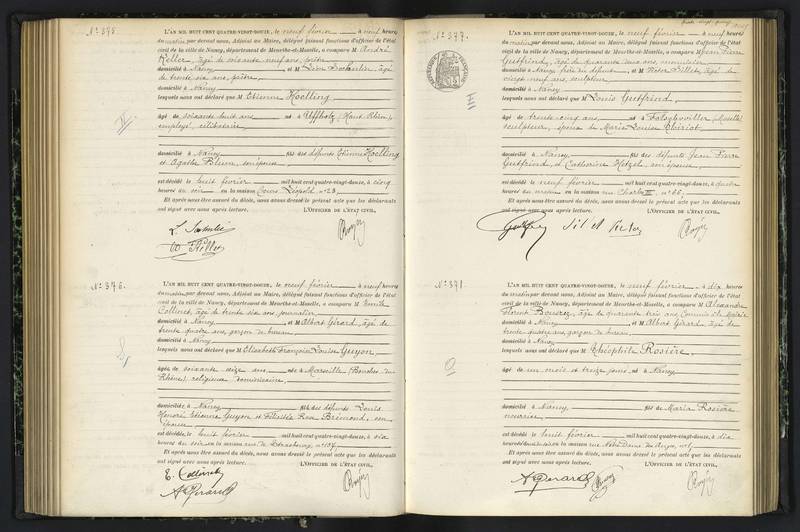 N° 375
L'AN MIL HUIT CENT QUATRE-VINGT-DOUZE, le neuf février à neuf heures
du matin par devant nous, Adjoint au Maire, délégué faisant fonctions d'officier de l'état
civil de la ville de Nancy, département de Meurthe-et-Moselle, a comparu M André
Keller, âgé de soixante neuf ans, prêtre
domicilié à Nancy et M Léon âgé
de trente six ans, prêtre
domicilié à Nancy
lesquels nous ont déclaré que M Etienne Hoelling
âgé de soixante huit ans né à Uffholtz (Haut-Rhin),
employé, célibataire,
domicilié à Nancy fils des défunts Etienne Hoelling
et Agathe Blum, son épouse
est décédé le huit février mil huit cent quatre-vingt-douze, à cinq
heures du soir en la maison Cours Léopold n° 23
Et après nous être assuré du décès, nous avons dressé le présent acte que les déclarants
ont signé avec nous après lecture. L'OFFICIER DE L'ÉTAT CIVIL,
N° 376.
L'AN MIL HUIT CENT QUATRE-VINGT-DOUZE, le neuf février à neuf heures
du matin par devant nous, Adjoint au Maire, délégué faisant fonctions d'officier de l'état
civil de la ville de Nancy, département de Meurthe-et-Moselle, a comparu M
Collinet, âgé de trente six ans, journalier
domicilié à Nancy, et M Albert Gérard, âgé de
trente quatre ans, garçon de bureau
domicilié à Nancy
lesquels nous ont déclaré que M Elisabeth Françoise Louise Guyon,
âgée de soixante seize ans née à Marseille (Bouches du
Rhône), religieuse dominicaine,
domiciliée à Nancy fille des défunts Louis
Honoré Etienne Guyon et Félicité Rose Brémond, son
épouse
est décédée, le huit février mil huit cent quatre-vingt-douze, à six
heures du soir en la maison rue de Strasbourg, n° 107
Et après nous être assuré du décès, nous avons dressé le présent acte que les déclarants
ont signé avec nous après lecture. L'OFFICIER DE L'ÉTAT CIVIL,
E. Collinet
A. Gérard
N° 377.
L'AN MIL HUIT CENT QUATRE-VINGT-DOUZE, le neuf février à neuf heures
du matin par devant nous, Adjoint au Maire, délégué faisant fonctions d'officier de l'état
civil de la ville de Nancy, département de Meurthe-et-Moselle, a comparu M Jean Pierre
Gutfriend, âgé de quarante deux ans, menuisier
domicilié à Nancy, frère du défunt, et M Victor Billet, âgé de
vingt neuf ans, sculpteur
domicilié à Nancy
lesquels nous ont déclaré que M Louis Gutfriend,
âgé de trente-cinq ans, né à (Moselle)
sculpteur, époux de Marie Louise
domicilié à Nancy, fils des défunts Jean Pierre
Gutfriend, et Catherine Hitzel, son épouse
est décédé le neuf février mil huit cent quatre-vingt-douze, à quatre
heures du matin en la maison rue Charles III n° 66.
Et après nous être assuré du décès, nous avons dressé le présent acte que les déclarants
ont signé avec nous après lecture. L'OFFICIER DE L'ÉTAT CIVIL,
L'AN MIL HUIT CENT QUATRE-VINGT-DOUZE, le neuf février à dix heures
du matin par devant nous, Adjoint au Maire, délégué faisant fonctions d'officier de l'état
civil de la ville de Nancy, département de Meurthe-et-Moselle, a comparu M Alexandre
Florent Bousrez, âgé de quarante trois ans, Commis à la Mairie
domicilié à Nancy, et M Albert Gérard, âgé de
trente quatre ans, garçon de bureau
domicilié à Nancy
lesquels nous ont déclaré que M Théophile Rosière.
âgé de un mois et treize jours né à Nancy
domicilié à Nancy, fils de Maria Rosière
est décédé le huit février mil huit cent quatre-vingt-douze, à dix
Et après nous être assuré du décès, nous avons dressé le présent acte que les déclarants
ont signé avec nous après lecture. L'OFFICIER DE L'ÉTAT CIVIL,
A. Gérard